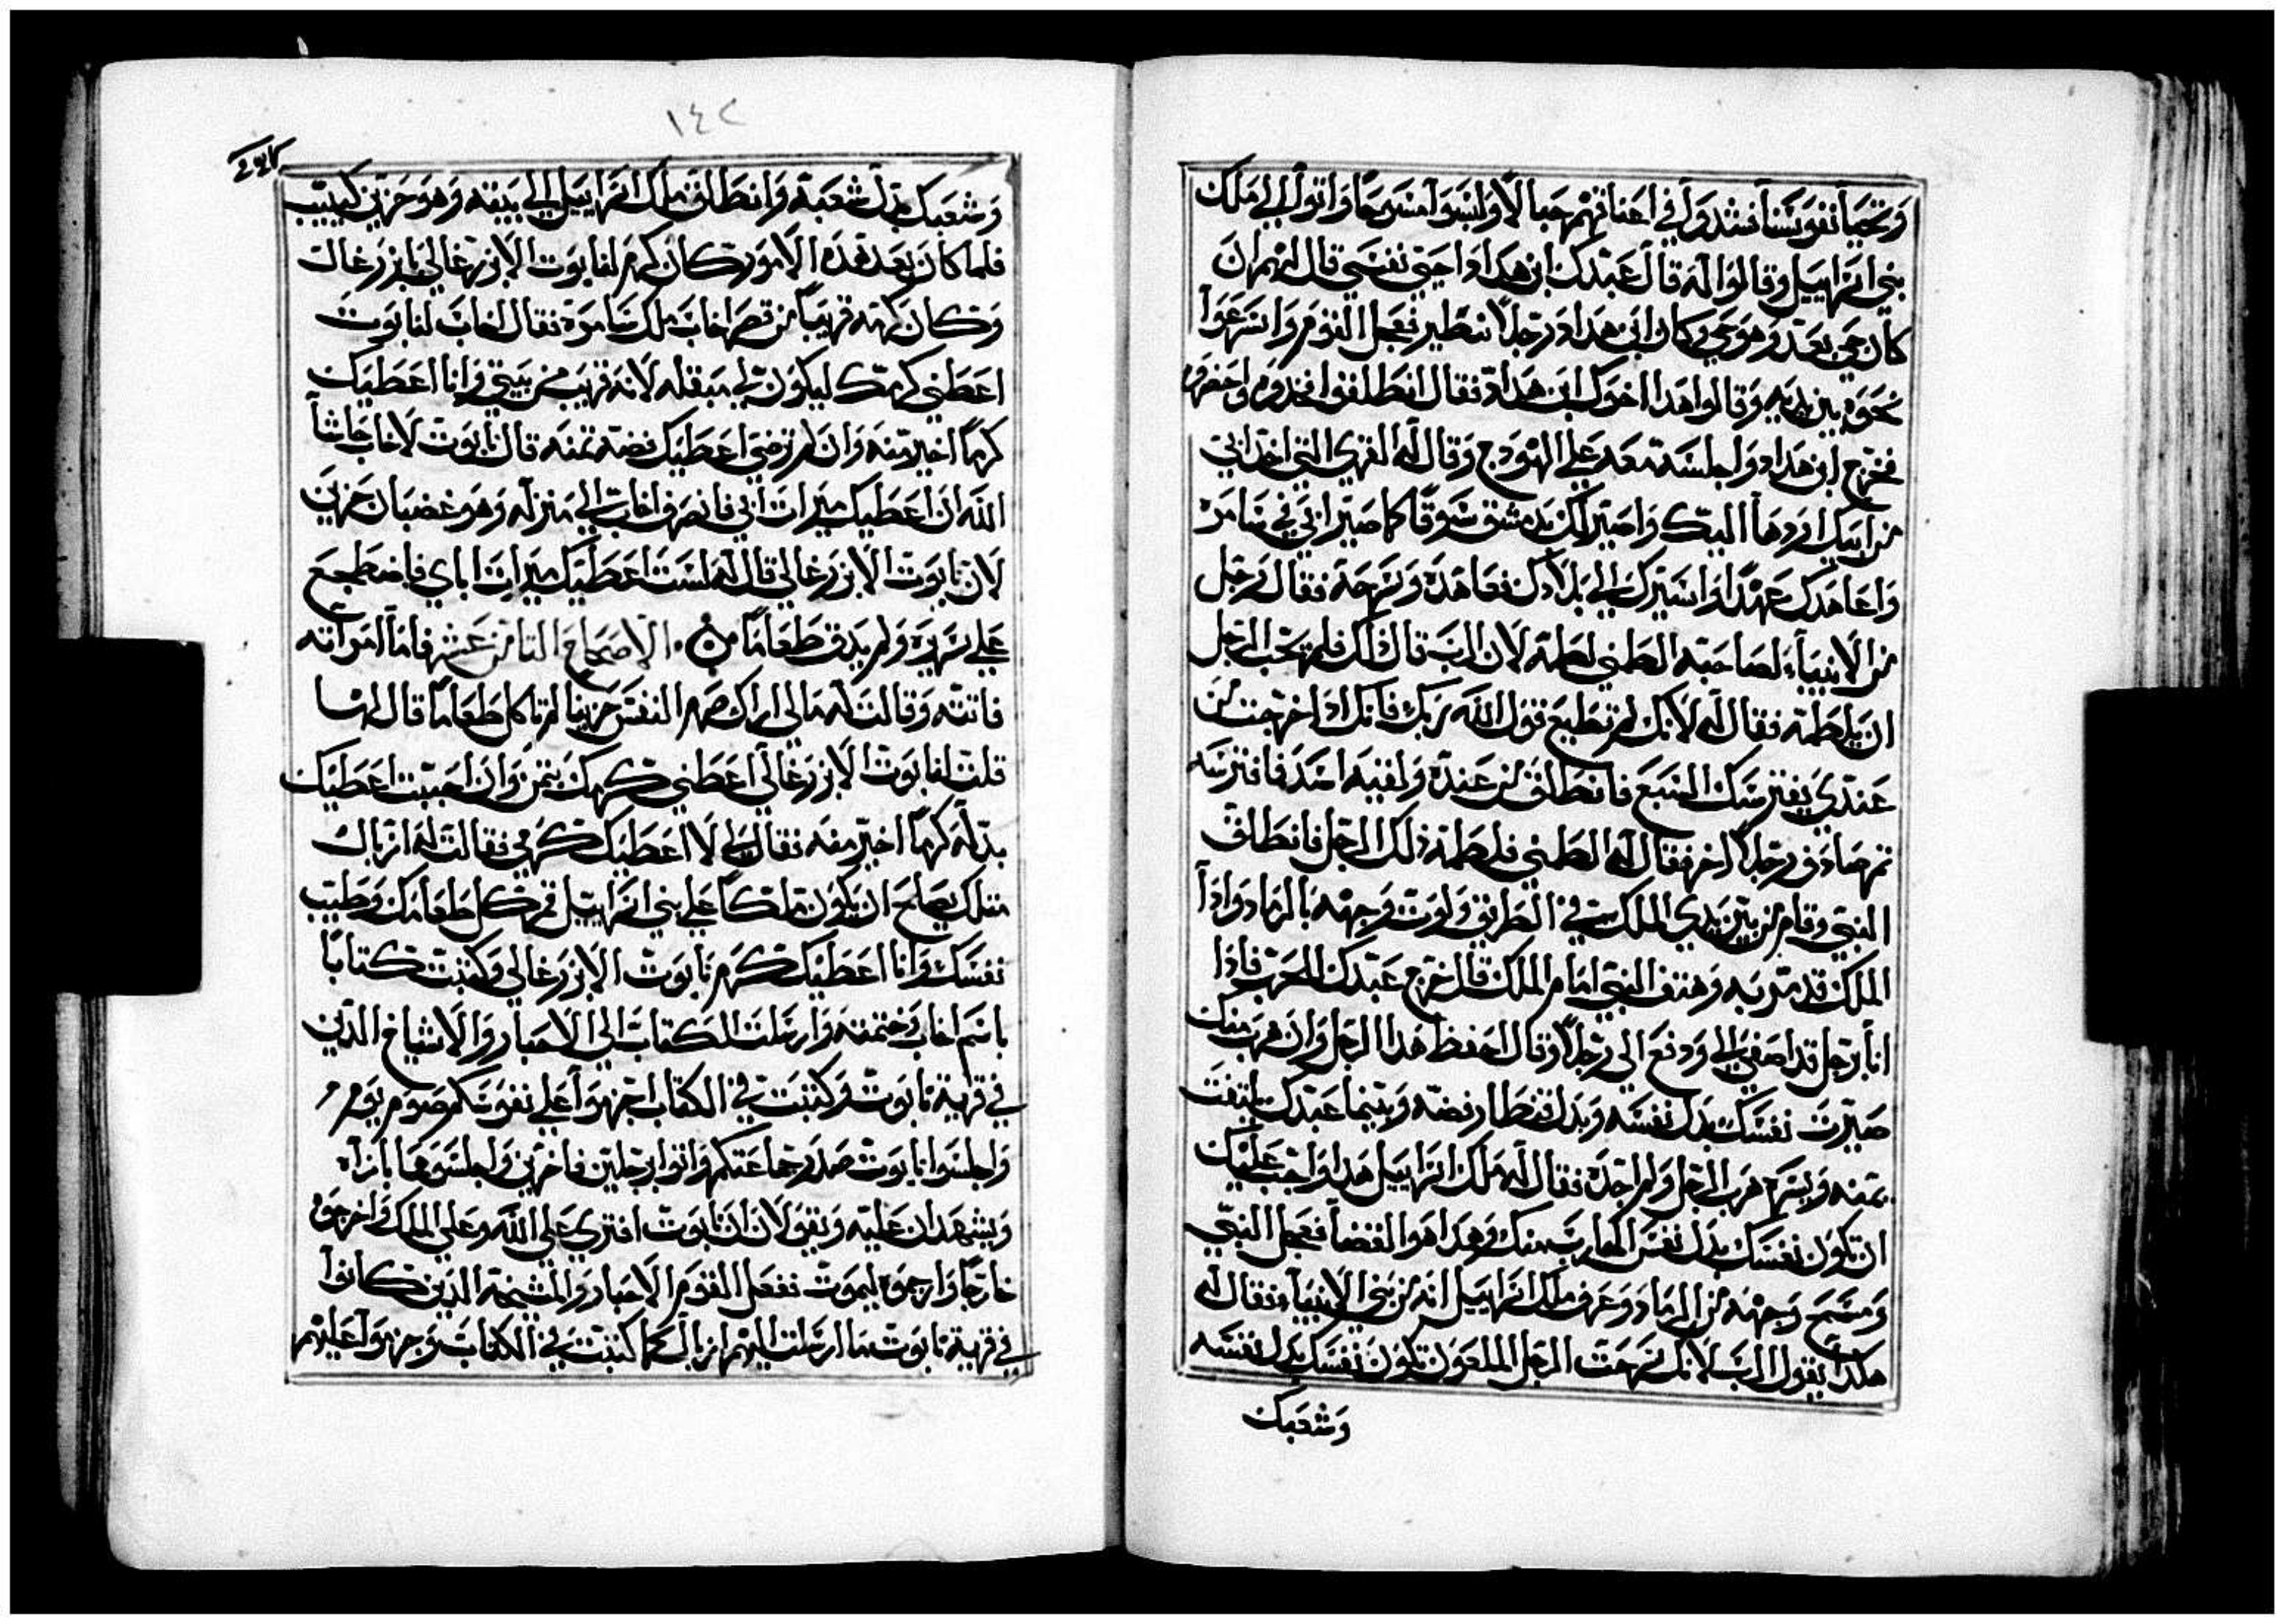 وتحيا نفوسنا فشدوا في اعناقهم حبالا ولبسوا مسوحا واتوا الي ملك
بني اسراييل وقالوا له قال عبدك ابن هداد احيي نفسي قال لهم ان
كان حي بعد وهو حي وكان ابن هداد رجلا متطير فعجل القوم واسرعوا
نحوه بين يديه وقالوا هذا اخوك ابن هداد فقال انطلقوا فخذوه واحضروه
فخرج ابن هداد واجلسه معه علي الهودج وقال له القري التي اخذ ابي
من ابيك اردها اليك واصير لك بدمشق سوقا كما صير ابي في سامره
واعاهدك عهدا واسيرك الي بلادك فعاهده وسرحه فقال رجل
من الانبياء لصاحبه الطمني لطمه لان الرب قال لك فلم يحب الرجل
ان يلطمه فقال له لانك لم تطيع قول الله ربك فانك اذا خرجت من
عندي يفترسك السبع فانطلق من عنده ولقيه اسد فافترسه
ثم صادف رجلا اخر فقال له الطمني فلطمه ذلك الرجل فانطلق
النبي وقام من بين يدي الملك في الطريق ولوث وجهه بالرماد واذا
الملك قد مر به وهتف النبي امام الملك قال خرج عبدك للحرب فاذا
انا برجل قد اصغي الي ودفع الي رجلا وقال احفظ هذا الرجل وان هرب منك
صيرت نفسك بدل نفسه وبدل قنطار فضه وبينما عبدك يلتفت
يمنه ويسره هرب الرجل ولم اجده فقال له ملك اسراييل هذا واجب عليك
ان تكون نفسك بدل نفس الهارب منك وهذا هو القضا فعجل النبي
ومسح وجهه من الرماد وعرف ملك اسراييل انه من بني الانبياء فقال له
هكذا يقول الرب لانك سرحت الرجل الملعون تكون نفسك بدل نفسه
وشعبك
١٤٢
وشعبك بدل شعبه وانطلق ملك اسراييل الي بيته وهو حزين كييب
فلما كان بعد هذه الامور كان كرم لنابوت الايزرغالي بايزرغال
وكان كرمه قريبا من قصر اخاب ملك سامره فقال اخاب لنابوت
اعطني كرمك ليكون لي مبقله لانه قريب من بيتي وانا اعطيك
كرما اخير منه وان لم ترضي اعطيك فضه ثمنه قال نابوت لاخاب حاشا
الله ان اعطيك ميراث ابي فانصرف اخاب الي منزله وهو غضبان حزين
لان نابوت الايزرغالي قال له لست اعطيك ميراث اباي فاضطجع
علي سريره ولم يذق طعاما الاصحاح الثامن عشر فاما امراته
فاتته وقالت له مالي اراك صغر النفس حزينا لم تاكل طعاما قال لها
قلت لنابوت الايزرغالي اعطني كرمك بثمن وان احببت اعطيك
بدله كرما اخير منه فقال لي لا اعطيك كرمي فقالت له ازبال
مثلك يصلح ان يكون ملكا علي بني اسراييل قم كل طعامك وطيب
نفسك وانا اعطيك كرم نابوت الايزرغالي وكتبت كتابا
باسم اخاب وختمته وارسلت الكتاب الي الاحبار والاشياخ الذين
في قرية نابوت وكتبت في الكتاب اجزموا علي نفوسكم صوم يوم
واجلسوا نابوت صدر جماعتكم واتوا برجلين فاخرين واجلسوهما بازآه
ويشهدان عليه ويقولان ان نابوت افتري علي الله وعلي الملك واخرجوه
خارجا وارجموه ليموت ففعل القوم الاحبار والمشيخه الذين كانوا
في قرية نابوت ما ارسلت اليهم ازبال كما كتبت في الكتاب وجزموا عليهم